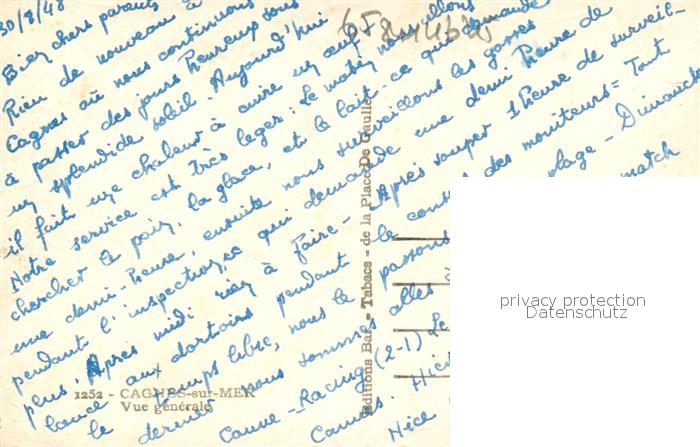 30/8/48
Bien chers parents
Rien de nouveau à
Cagnes où nous continuons
à passer des jours heureux sous
un splendide soleil. Aujourd'hui
il fait une chaleur à cuire un œuf
Notre service est très léger: le matin nous allons
chercher le pain, la glace, et le lait - ce qui demande
une demi-heure, ensuite nous surveillons les gosses
pendant l'inspection, ce qui demande une demi heure de
plus. Après midi rien à faire - Après souper 1 heure de surveil-
lance aux dortoirs pendant le conseil des moniteurs = Tout
le temps libre, nous le passons plage - Dimanche
dernier nous sommes allés match
Canne - Racing (2-1) Le
Cannes.
Nice
1252 - CAGNES-sur-MER
Vue générale
Editions Bar - Tabacs - de la Place De Gaulle
privacy protection
Datenschutz